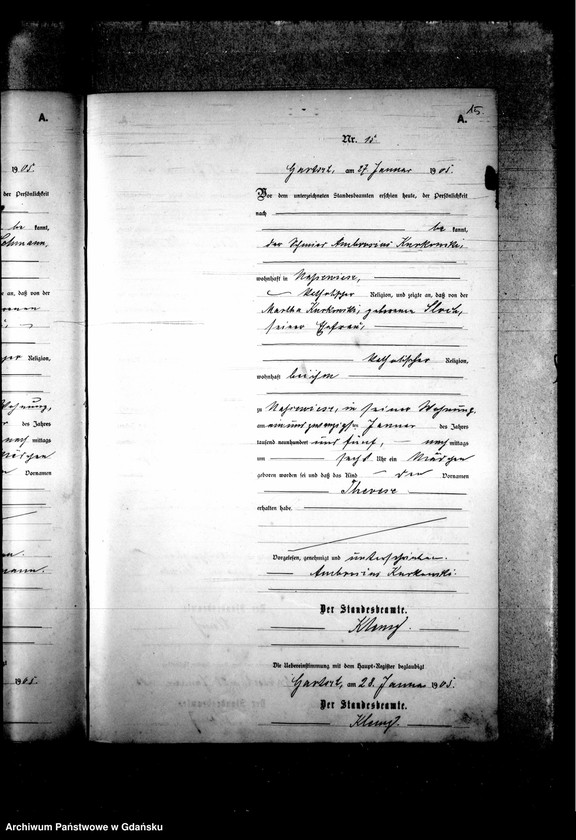 A.
1905
der Persönlichkeit
be kannt,
an, daß von der
Religion,
Wohnung,
des Jahres
nach mittags
Mädchen
Vornamen
1905.
15
A.
Nr. 15
am 27 Januar 1905.
Vor dem unterzeichneten Standesbeamten erschien heute, der Persönlichkeit
nach
be kannt,
der Ambrosius Kurkowski,
wohnhaft in
katholischer Religion, und zeigte an, daß von der
Martha Kurkowski, geborenen
seiner Ehefrau,
katholischer Religion,
wohnhaft bei ihm
zu in seiner Wohnung,
am ein und zwanzigsten Januar des Jahres
tausend neunhundert und fünf, nach mittags
um sechs Uhr ein Mädchen
geboren worden sei und daß das Kind den Vornamen
Therese
erhalten habe.
Vorgelesen, genehmigt und unterschrieben.
Ambrosius Kurkowski.
Der Standesbeamte.
Die Uebereinstimmung mit dem Haupt-Register beglaubigt
am 28. Januar 1905.
Der Standesbeamte.
Archiwum Państwowe w Gdańsku